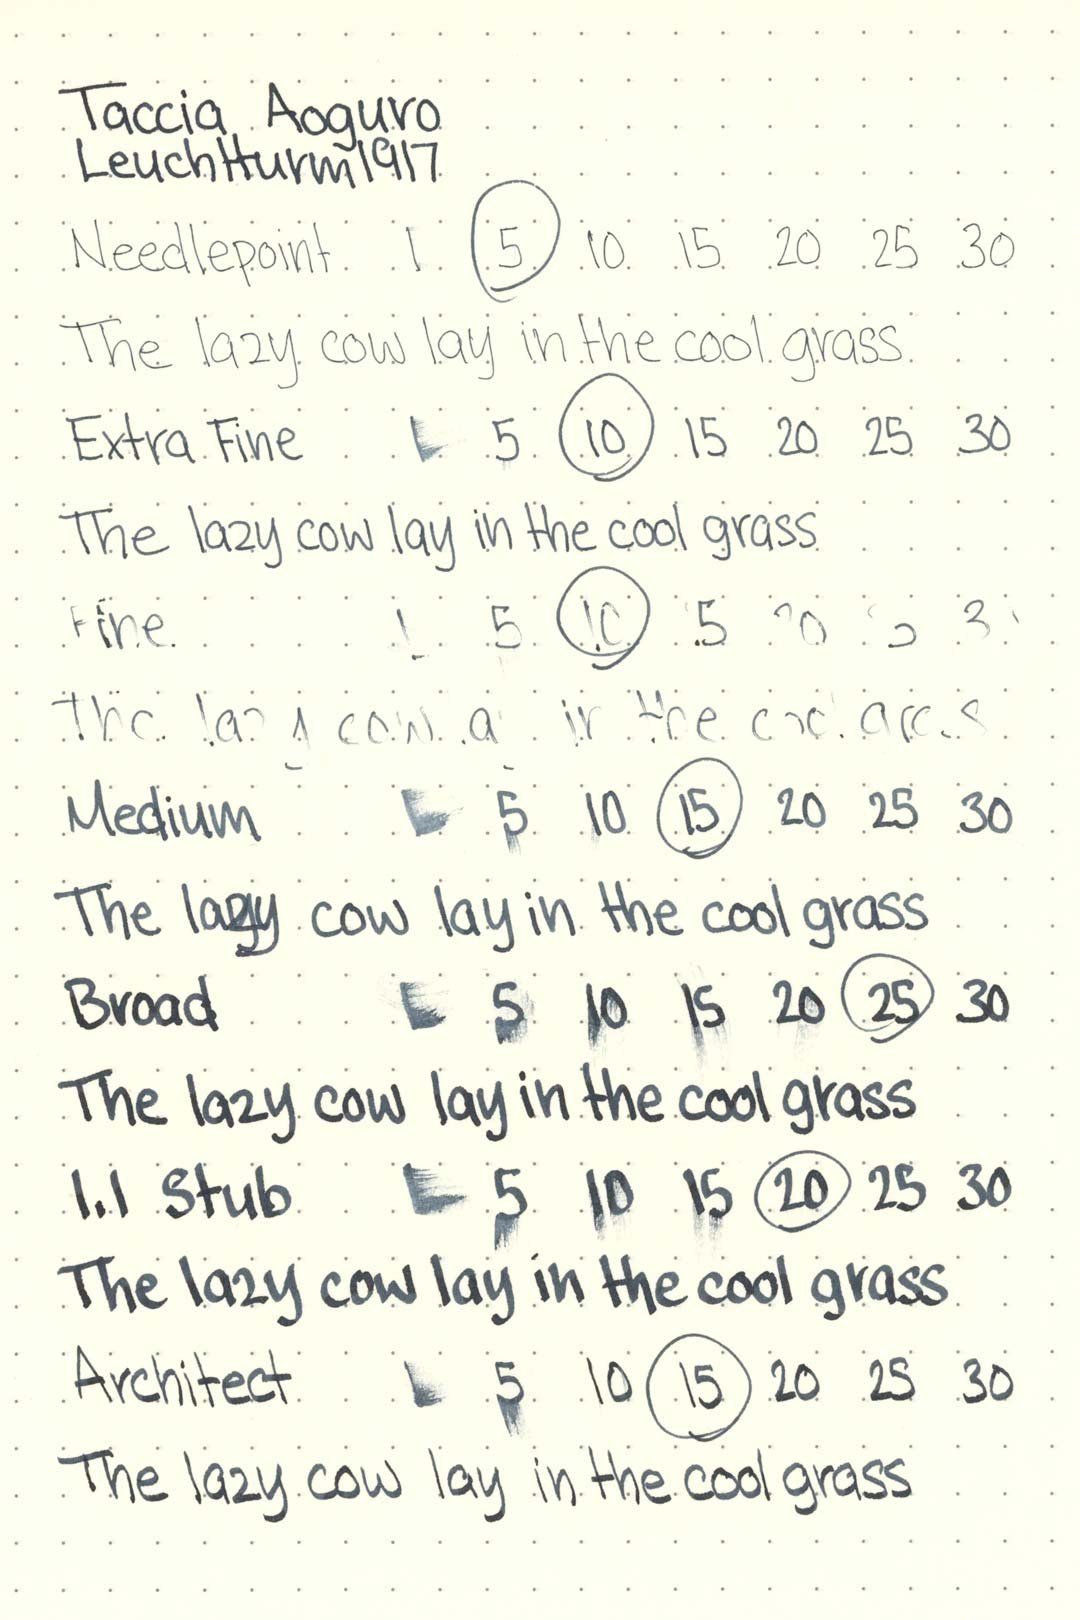 Taccia Aoguro
Leuchtturm1917
Needlepoint 1 5 10 15 20 25 30
The lazy cow lay in the cool grass
Extra Fine 1 5 10 15 20 25 30
The lazy cow lay in the cool grass
Fine 1 5 10 15 20 25 30
The lazy cow lay in the cool grass
Medium 1 5 10 15 20 25 30
The lazy cow lay in the cool grass
Broad 1 5 10 15 20 25 30
The lazy cow lay in the cool grass
1.1 Stub 1 5 10 15 20 25 30
The lazy cow lay in the cool grass
Architect 1 5 10 15 20 25 30
The lazy cow lay in the cool grass